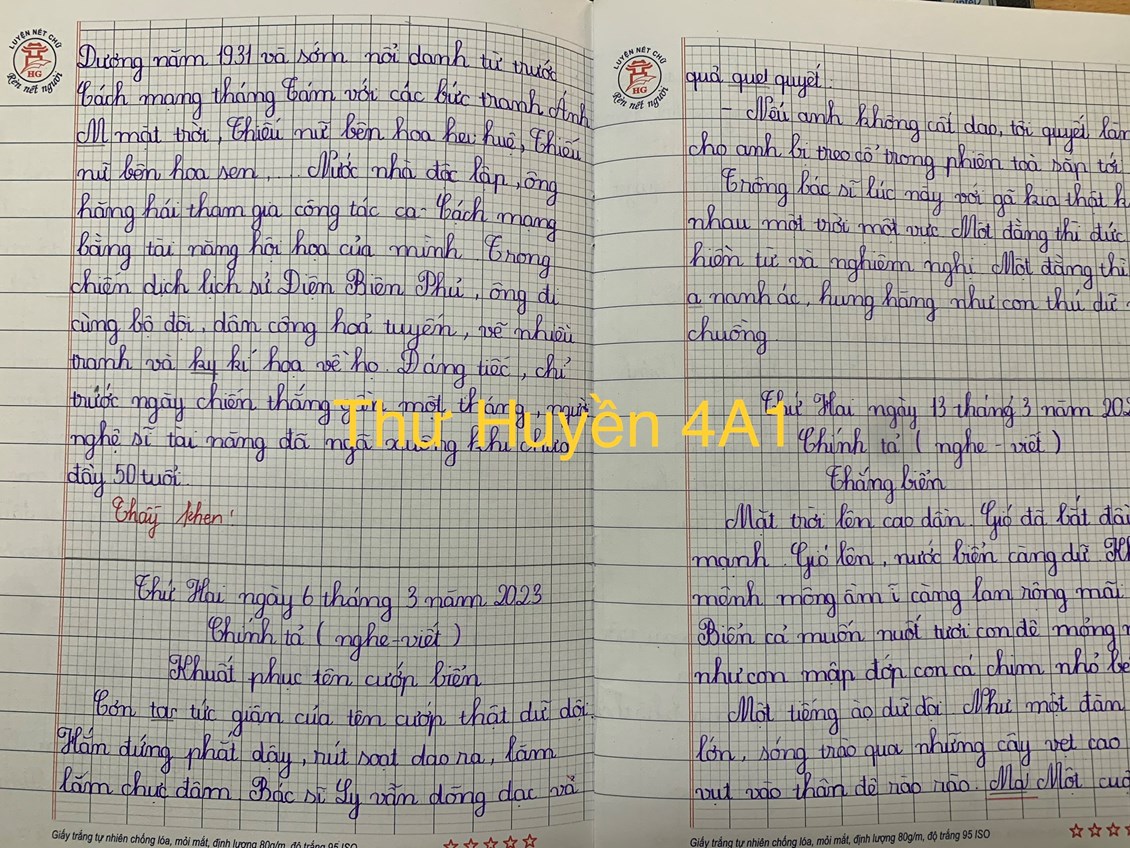 LUYỆN NÉT CHỮ
HG
Rèn nết người
Dương năm 1931 và sớm nổi danh từ trước
Cách mạng tháng Tám với các bức tranh Ánh
M mặt trời, Thiếu nữ bên hoa heu huệ, Thiếu
nữ bên hoa sen,... Nước nhà độc lập, ông
hăng hái tham gia công tác ca- Cách mạng
bằng tài năng hội họa của mình Trong
chiến dịch lịch sử Diện Biên Phủ, ông đi
cùng bộ đội, dân công hoả tuyến, vẽ nhiều
tranh và ky kí họa về họ. Đáng tiếc, chỉ
trước ngày chiến thắng gần một tháng, người
nghệ sĩ tài năng đã ngã xuống khi chưa
đầy 50 tuổi.
Thầy khen!
Thứ Hai ngày 6 tháng 3 năm 2023
Chính tả ( nghe-viết )
Khuất phục tên cướp biển
Cơn tức giận của tên cướp thật dữ dội.
Hắn đứng phắt dậy, rút soạt dao ra, lăm
lăm chực đâm Bác sĩ Ly vẫn dõng dạc và
Giấy trắng tự nhiên chống lóa, mỏi mắt, định lượng 80g/m, độ trắng 95 ISO
LUYỆN NÉT CHỮ
HG
Rèn nết người
quả quel quyết.
- Nếu anh không cất dao, tôi quyết làm
cho anh bị treo cổ trong phiên toà sắp tới
Trông bác sĩ lúc này với gã kia thật
nhau một trời một vực Một đằng thì đức
hiền từ và nghiêm nghị Một đằng thì
a nanh ác, hung hăng như con thú dữ
chuồng.
Thứ Hai ngày 13 tháng 3 năm 202
Chính tả ( nghe-viết )
Thắng biển
Mặt trời lên cao dần. Gió đã bắt đầ
mạnh. Gió lên, nước biển càng dữ
mênh mông ầm ĩ càng lan rộng mãi
Biển cả muốn nuốt tươi con đê mỏng
như con mập đớp con cá chim nhỏ bé
Một tiếng ào dữ dội Như một đàn
lớn, sóng trào qua những cây vẹt cao
vụt vào thân đê rào rào. Mạ Một cuộ
Giấy trắng tự nhiên chống lóa, mỏi mắt, định lượng 80g/m, độ trắng 95 ISO
Thư Huyền 4A1